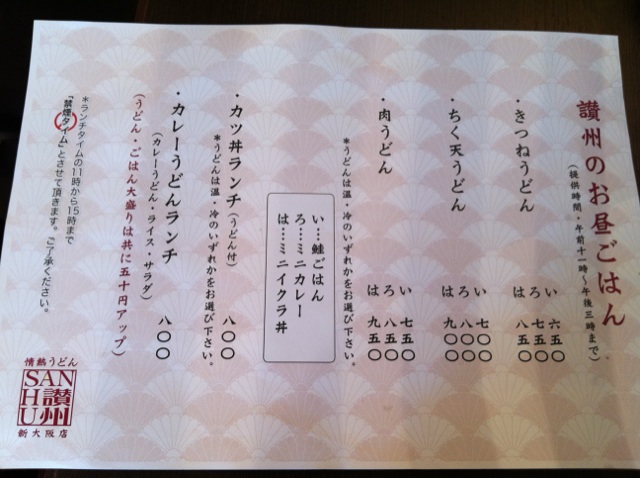 讃州のお昼ごはん
(提供時間・午前十一時〜午後三時まで)
・きつねうどん
い 六五〇
ろ 七五〇
は 八五〇
・ちく天うどん
い 七〇〇
ろ 八〇〇
は 九〇〇
・肉うどん
い 七五〇
ろ 八五〇
は 九五〇
*うどんは温・冷のいずれかをお選び下さい。
い…鮭ごはん
ろ…ミニカレー
は…ミニイクラ丼
・カツ丼ランチ(うどん付) 八〇〇
*うどんは温・冷のいずれかをお選び下さい。
・カレーうどんランチ 八〇〇
(カレーうどん・ライス・サラダ)
(うどん・ごはん大盛りは共に五十円アップ)
*ランチタイムの11時から15時まで
「禁煙タイム」とさせて頂きます。ご了承ください。
情熱うどん
SAN
HU
讃州
新大阪店